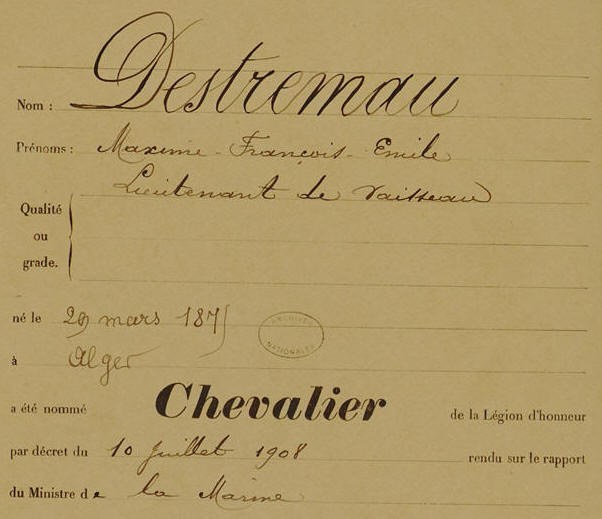 Nom : Destremau
Prénoms : Maxime - François - Emile
Lieutenant de vaisseau
Qualité
ou
grade.
né le 29 mars 1875
à Alger
ARCHIVES
NATIONALES
a été nommé Chevalier de la Légion d'honneur
par décret du 10 juillet 1908 rendu sur le rapport
du Ministre de la Marine